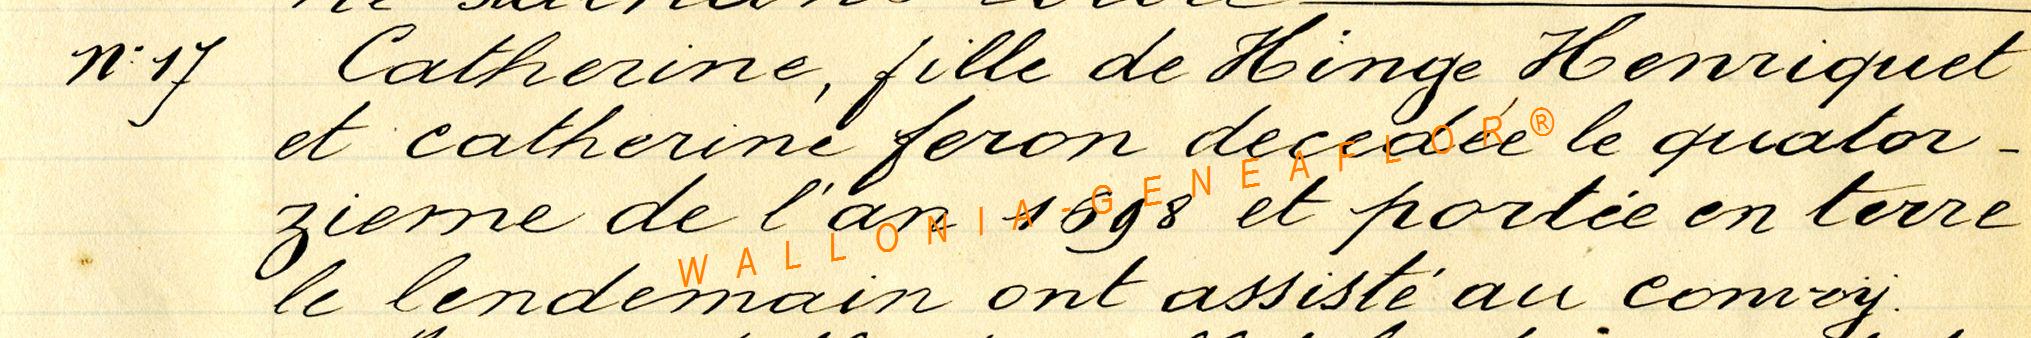 n° 17 Catherine, fille de Hinge Henriquet
et catherine feron decedée le quator-
zieme de l'an 1698 et portée en terre
le lendemain ont assisté au convoÿ.
WALLONIA-GENEAFLOR®